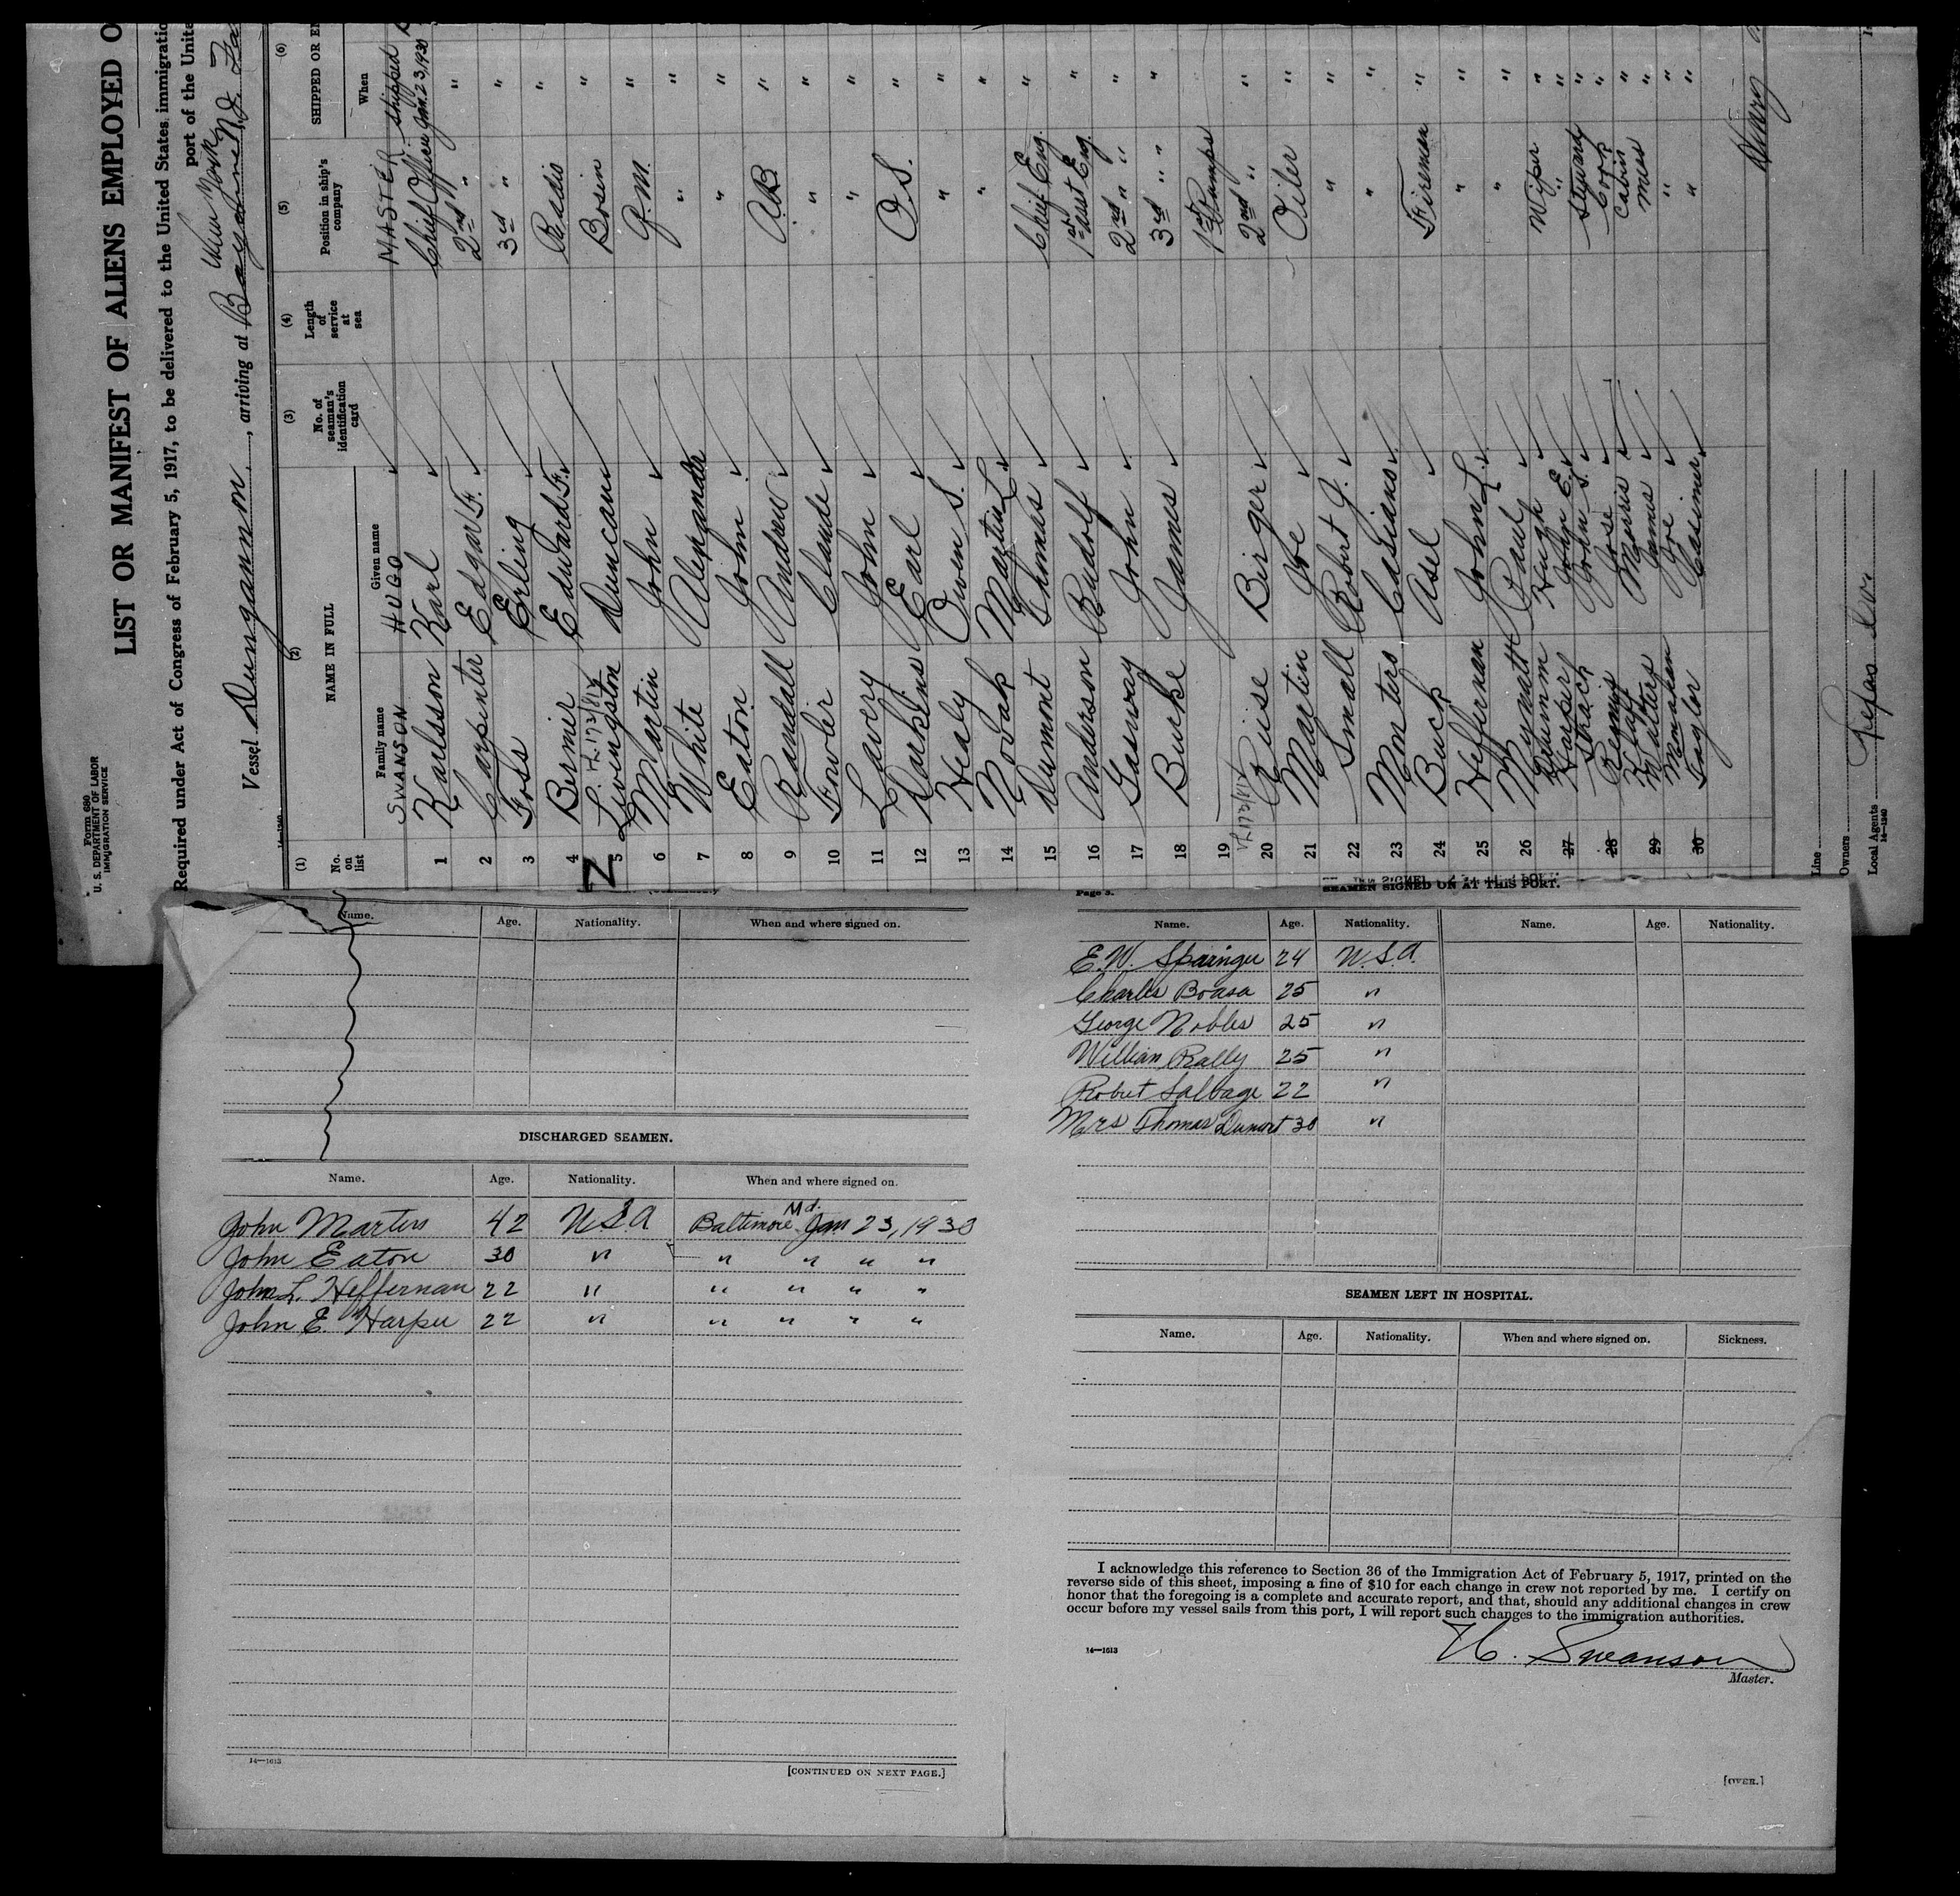 Form 680
U. S. DEPARTMENT OF LABOR
IMMIGRATION SERVICE
LIST OR MANIFEST OF ALIENS EMPLOYED O
Required under Act of Congress of February 5, 1917, to be delivered to the United States immigratio
port of the Unite
New York
Vessel Dungannon, arriving at Bayonne N.J.
(1) (2) (3) (4) (5) (6)
No. on list NAME IN FULL No. of seaman's identification card Length of service at sea Position in ship's company SHIPPED OR E
Family name Given name When
SWANSON HUGO MASTER shipped
1 Karlsson Karl Chief Officer Jan. 23, 1930
2 Carpenter Edgar F. 2nd " "
3 Foss Erling 3rd " "
4 Bernier Edward F. Radio "
5 Livingston Duncan Bosin "
6 Martin John Q.M. "
7 White Alexander " "
8 Eaton John " "
9 Randall Andrew A.B. "
10 Fowler Claude " "
11 Lavery John " "
12 Darkins Earl O.S. "
13 Healy Owen S. " "
14 Novak Martin L. " "
15 Dumont Thomas Chief Eng. "
16 Anderson Rudolf 1st asst Eng. "
17 Garway John 2nd " " "
18 Burke James 3rd " " "
19
20 Ruise Birger 2nd " "
21 Martin Joe Oiler "
22 Small Robert J. " "
23 Monters Casiano " "
24 Buck Asel Fireman "
25 Heffernan John L. " "
26 Mynatt Paul " "
Quinn Hugh Wiper "
27 Harper John E. " "
Strack John S. Steward "
28 Remis Jose Cook "
Kraft Morris Cabin "
29 Walters James Mess "
Monahan Joe " "
30 Taylor Casimer " "
Line
Owners
Local Agents
14—1240
Name. Age. Nationality. When and where signed on.
DISCHARGED SEAMEN.
Name. Age. Nationality. When and where signed on.
John Martin 42 U.S.A Baltimore Md. Jan 23, 1930
John Eaton 30 " " " " "
John L. Heffernan 22 " " " " "
John E. Harper 22 " " " " "
14—1613
[CONTINUED ON NEXT PAGE.]
Page 3.
SEAMEN SIGNED ON AT THIS PORT.
Name. Age. Nationality. Name. Age. Nationality.
E.W. Springer 24 U.S.A.
Charles Boasa 25 "
George Nobles 25 "
William Rally 25 "
Robert Salvage 22 "
Mrs Thomas Dumont 30 "
SEAMEN LEFT IN HOSPITAL.
Name. Age. Nationality. When and where signed on. Sickness.
I acknowledge this reference to Section 36 of the Immigration Act of February 5, 1917, printed on the
reverse side of this sheet, imposing a fine of $10 for each change in crew not reported by me. I certify on
honor that the foregoing is a complete and accurate report, and that, should any additional changes in crew
occur before my vessel sails from this port, I will report such changes to the immigration authorities.
H. Swanson
Master.
14—1613
[OVER.]